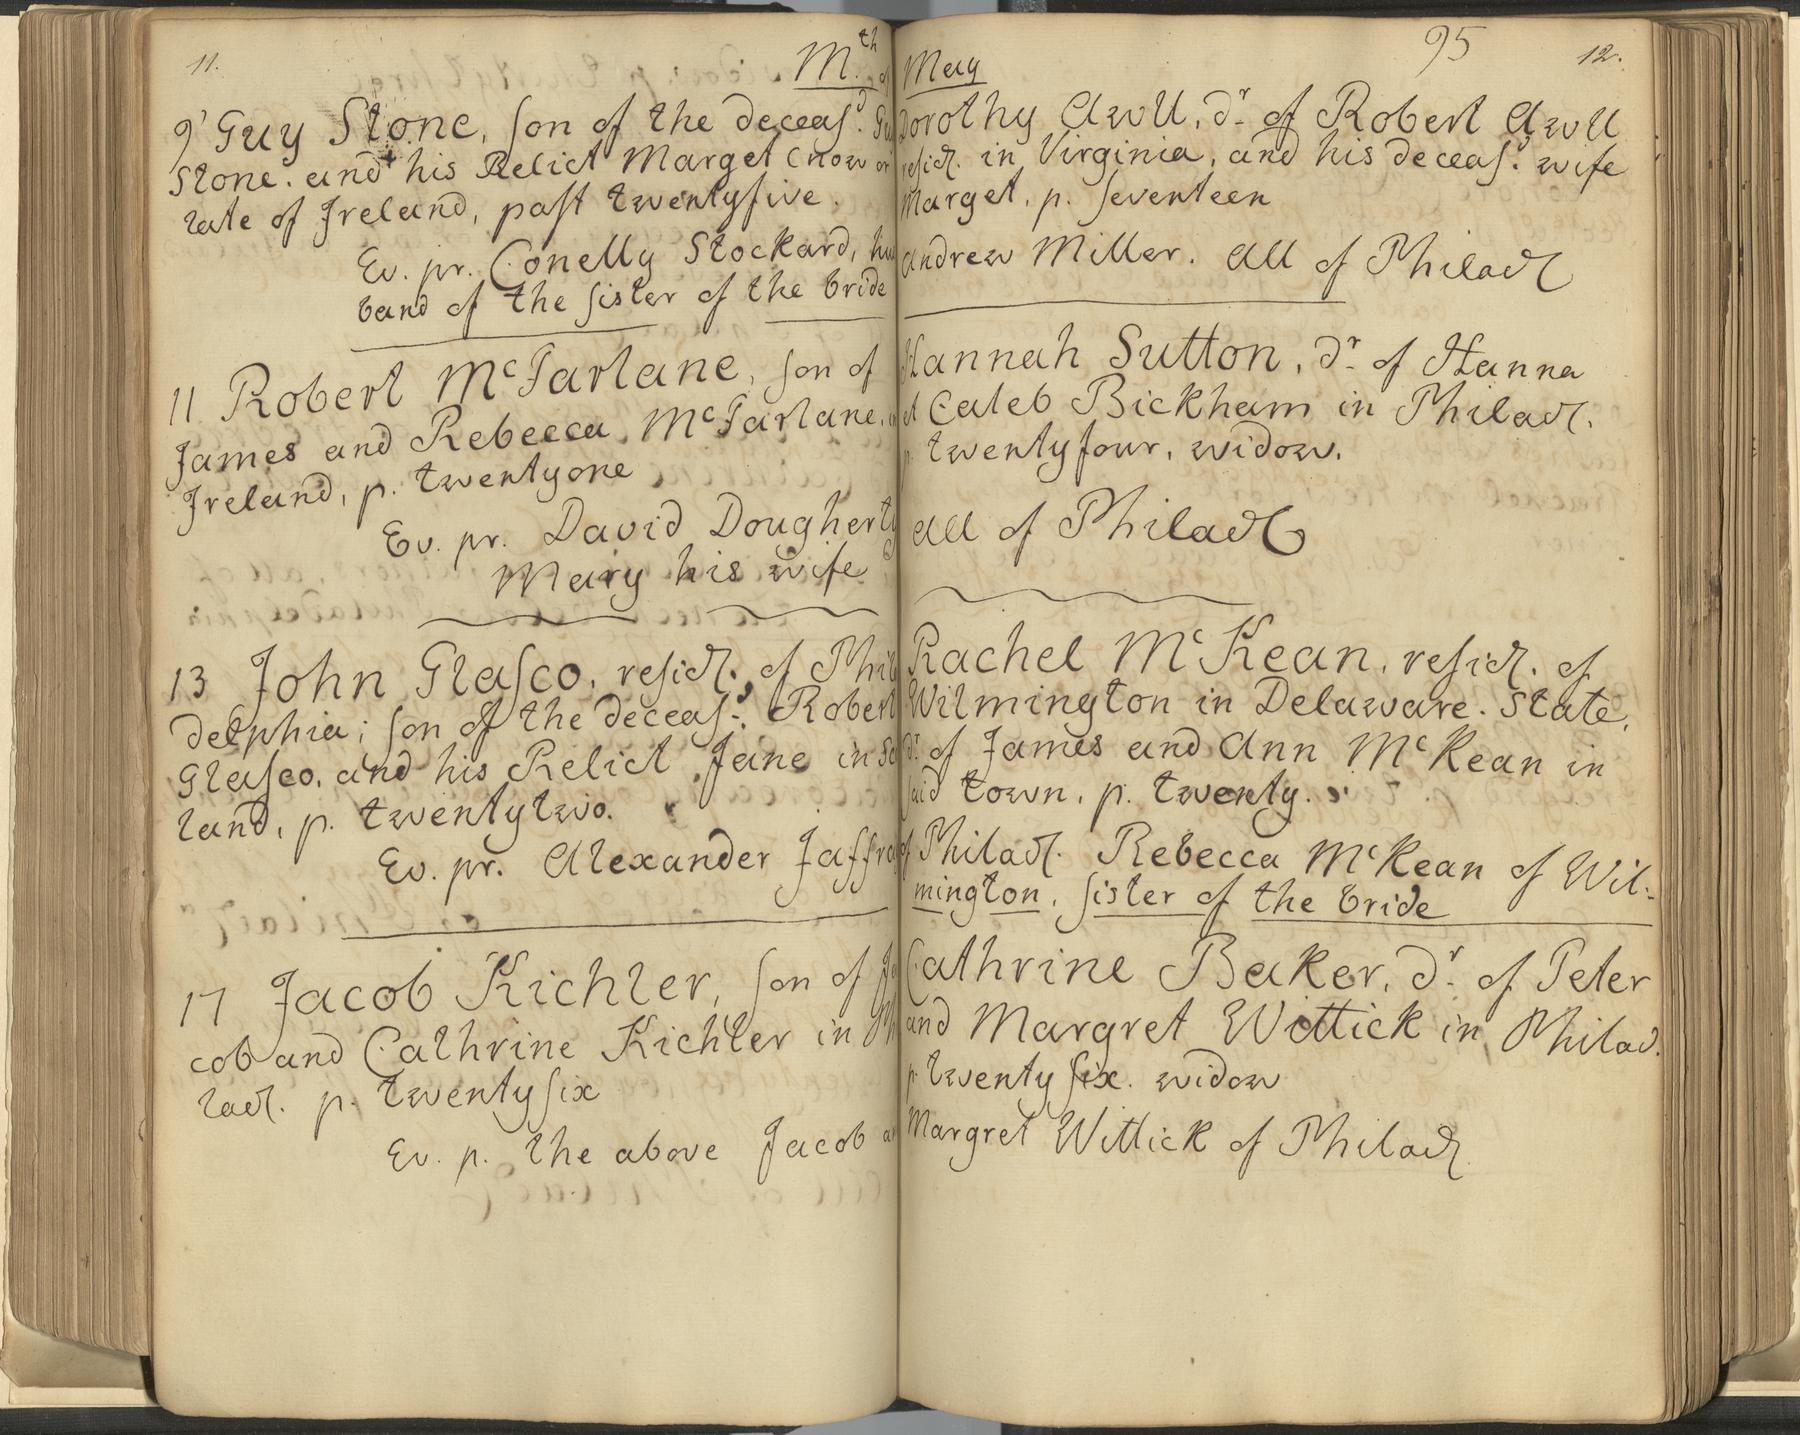 11.
Mth
9 Guy Stone, son of the deceas'd. Gu
Stone. and his Relict Marget (now or
late of Ireland, past twentyfive.
Ev. pr. Conelly Stockard, hus
band of the sister of the bride
11 Robert McFarlane, son of
James and Rebecca McFarlane,
Ireland, p. twentyone
Ev. pr. David Dougherty
Mary his wife
13 John Glasco, resid. of Phil
delphia; son of the deceas'd. Robert
Glasco, and his Relict Jane in Sc
land, p. twentytwo.
Ev. pr. Alexander Jaffra
17 Jacob Kichler, son of Ja
cob and Cathrine Kichler in Ph
lad. p. twentysix
Ev. p. the above Jacob an
95
12.
May
Dorothy Awll, dr. of Robert Awll
resid. in Virginia, and his deceas'd. wife
Marget, p. seventeen
Andrew Miller. All of Philad
Hannah Sutton, dr. of Hanna
et Caleb Bickham in Philad.
p. twentyfour, widow.
All of Philad
Rachel McKean, resid. of
Wilmington in Delaware. State,
dr. of James and Ann McKean in
said town, p. twenty.
of Philad. Rebecca McKean of Wil-
mington, sister of the bride
Cathrine Baker, dr. of Peter
and Margret Wittick in Philad.
p. twentysix. widow
Margret Wittick of Philad